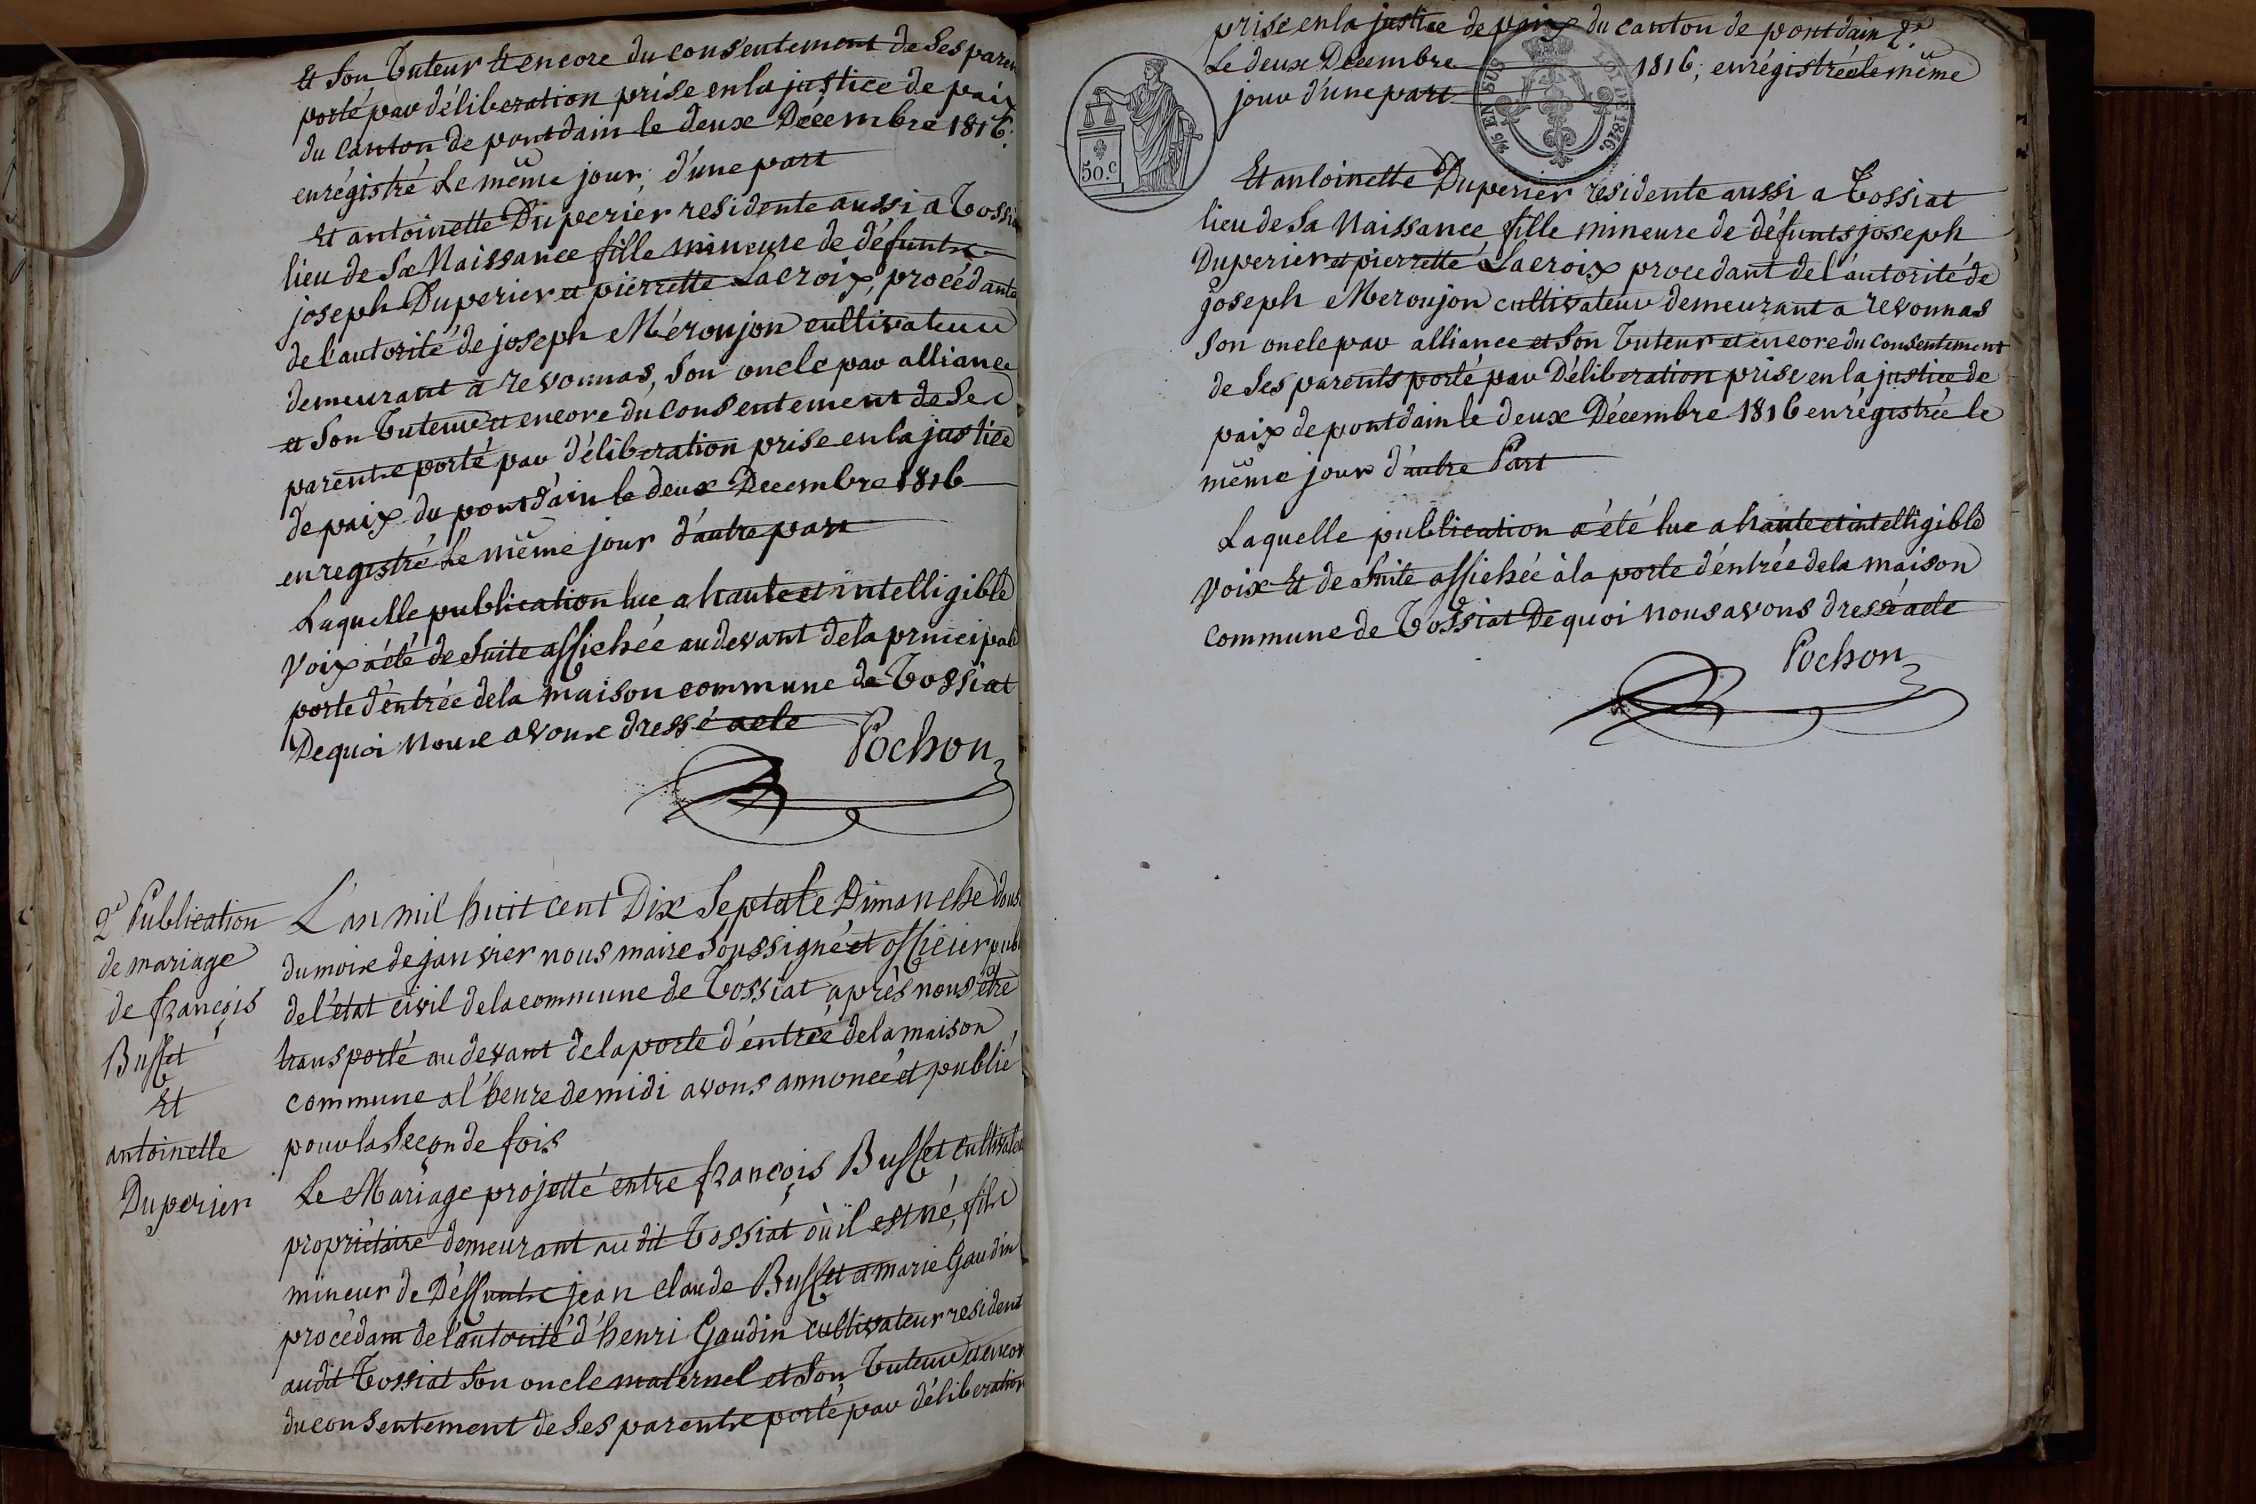 Et Son Tuteur Et encore du consentement de Ses paren
porté par déliberation prise en la justice de paix
du Canton de pontdain le deux Décembre 1816.
enrégistré Le même jour; d'une part
Et antoinette Duperier residente aussi a Tossiat
lieu de Sa Naissance fille mineure de défunts
joseph Duperier et pierrette Lacroix, procédante
de l'autorité de joseph Méroujon cultivateur
demeurant a revonnas, Son oncle par alliance
et Son Tuteur et encore du consentement de Ses
parents porté par déliberation prise en la justice
de paix du pontd'ain le deux Decembre 1816
enregistré Le même jour d'autre part
Laquelle publication lue a haute et intelligible
Voix a été de Suite affichée au devant de la principale
porte d'entrée de la maison commune de Tossiat
De quoi Nous avons dressé acte
Pochon
2e Publication
de mariage
de françois
Buffet
Et
antoinette
Duperier
L'an mil huit cent Dix Sept et le Dimanche douse
du mois de janvier nous maire Soussigné et officier publ
de l'état civil de la commune de Tossiat après nous être
transporté au devant de la porte d'entrée de la maison
commune a l'heure de midi avons annoncé et publié
pour la Seconde fois
Le Mariage projetté entre françois Buffet cultivateu
propriétaire demeurant au dit Tossiat où il est né, fils
mineur de Deffunts jean claude Buffet et marie Gaudin
procédant de l'autorité d'henri Gaudin cultivateur resident
au dit Tossiat Son oncle maternel et Son Tuteur et encor
du consentement de Ses parents porté par déliberation
prise en la justice de paix du canton de pontdain
Le deux Décembre 1816; enrégistrée le même
jour d'une part
50.C
EN SUS
LOI DE 1816.
Et antoinette Duperier residente aussi a Tossiat
lieu de Sa Naissance fille mineure de défunts joseph
Duperier et pierrette Lacroix procedant de l'autorité de
joseph Meroujon cultivateur demeurant a revonnas
Son oncle par alliance et Son Tuteur et encore du Consentement
de Ses parents porté par Déliberation prise en la justice de
paix de pontdain le deux Décembre 1816 enrégistrée le
même jour d'autre Part
Laquelle publication a été lue a haute et intelligible
Voix Et de Suite affichée à la porte d'entrée de la maison
commune de Tossiat De quoi Nous avons dressé acte
Pochon